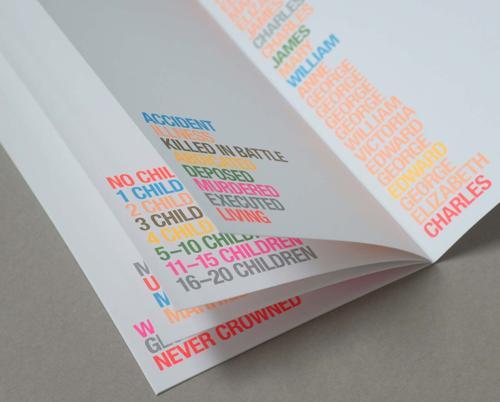 ACCIDENT
ILLNESS
KILLED IN BATTLE
ABDICATED
DEPOSED
MURDERED
EXECUTED
LIVING
NO CHIL
1 CHILD
2 CHILD
3 CHILD
4 CHILD
5–10 CHILD
11–15 CHILDREN
16–20 CHILDREN
NEVER CROWNED
JAMES
CHARLES
CHARLES
JAMES
MARY
WILLIAM
ANNE
GEORGE
GEORGE
GEORGE
GEORGE
WILLIAM
VICTORIA
EDWARD
GEORGE
EDWARD
GEORGE
ELIZABETH
CHARLES